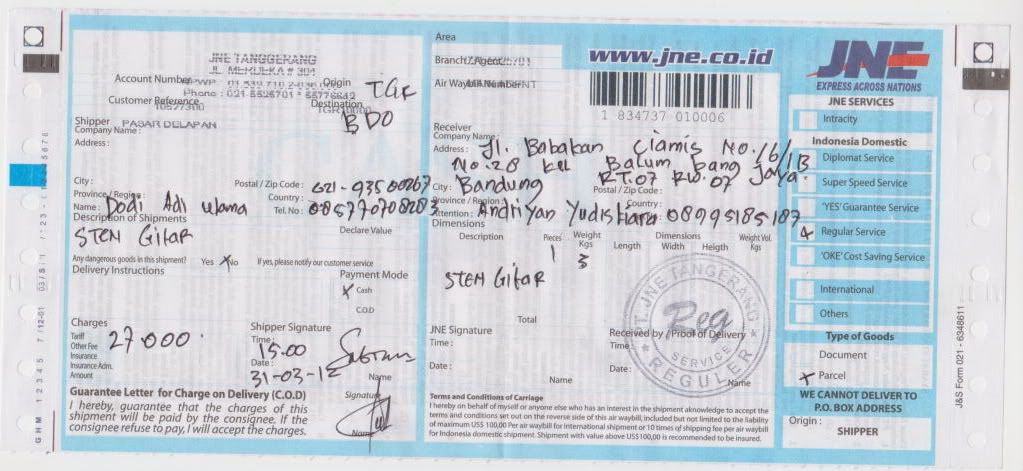 JNE TANGGERANG
JL MERDEKA # 304
Account Number
Origin TGR
Phone : 021 5525701 - 55776642
Customer Reference
Destination
BDO
Shipper PASAR DELAPAN
Company Name :
Address :
City :
Postal / Zip Code : 021-93500267
Province / Region :
Country :
Name : Dodi Adi utama
Tel. No : 085770708283
Description of Shipments
Declare Value
STEM GitAR
Any dangerous goods in this shipment? Yes No If yes, please notify our customer service
Delivery Instructions
Payment Mode
Cash
C.O.D
Charges
Tariff 27.000.
Other Fee
Insurance
Insurance Adm.
Amount
Shipper Signature
Time : 15.00
Date : 31-03-12
Name
Guarantee Letter for Charge on Delivery (C.O.D)
I hereby, guarantee that the charges of this
shipment will be paid by the consignee. If the
consignee refuse to pay, I will accept the charges.
Signature
Name
Area
Branch / Agent
Air Waybill Number
www.jne.co.id
1 834737 010006
Receiver
Company Name :
Address : Jl. Babakan Ciamis No. 16/1B
No. 28 kel Balum bang Jaya
RT.07 RW.07
City : Bandung
Postal / Zip Code :
Province / Region :
Country :
Attention : Andriyan Yudistiara 08995185187
Dimensions
Description Pieces Weight Kgs Dimensions Weight Vol. Kgs
Length Width Heigth
1 3
STEM GitAR
Total
JNE Signature
Time :
Date :
Name
Received by / Proof of Delivery
Time :
Date :
Name
PT. JNE TANGERANG
Reg
SERVICE
REGULER
Terms and Conditions of Carriage
I hereby on behalf of myself or anyone else who has an interest in the shipment aknowledge to accept the
terms and conditions set out on the reverse side of this air waybill, included but not limited to the liability
of maximum US$ 100,00 Per air waybill for international shipment or 10 times of shipping fee per air waybill
for Indonesia domestic shipment. Shipment with value above US$100,00 is recommended to be insured.
JNE
EXPRESS ACROSS NATIONS
JNE SERVICES
Intracity
Indonesia Domestic
Diplomat Service
Super Speed Service
'YES' Guarantee Service
Regular Service
'OKE' Cost Saving Service
International
Others
Type of Goods
Document
Parcel
WE CANNOT DELIVER TO
P.O. BOX ADDRESS
Origin :
SHIPPER
J&S Form 021 - 6348611